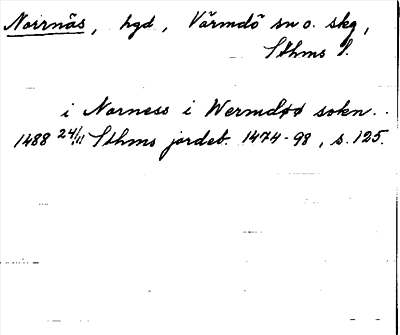 Norrnäs, hgd, Värmdö sn o. skg,
Sthms l.
i Norness i Wermdøø sokn..
1488 24/11 Sthms jordeb. 1474-98, s. 125.